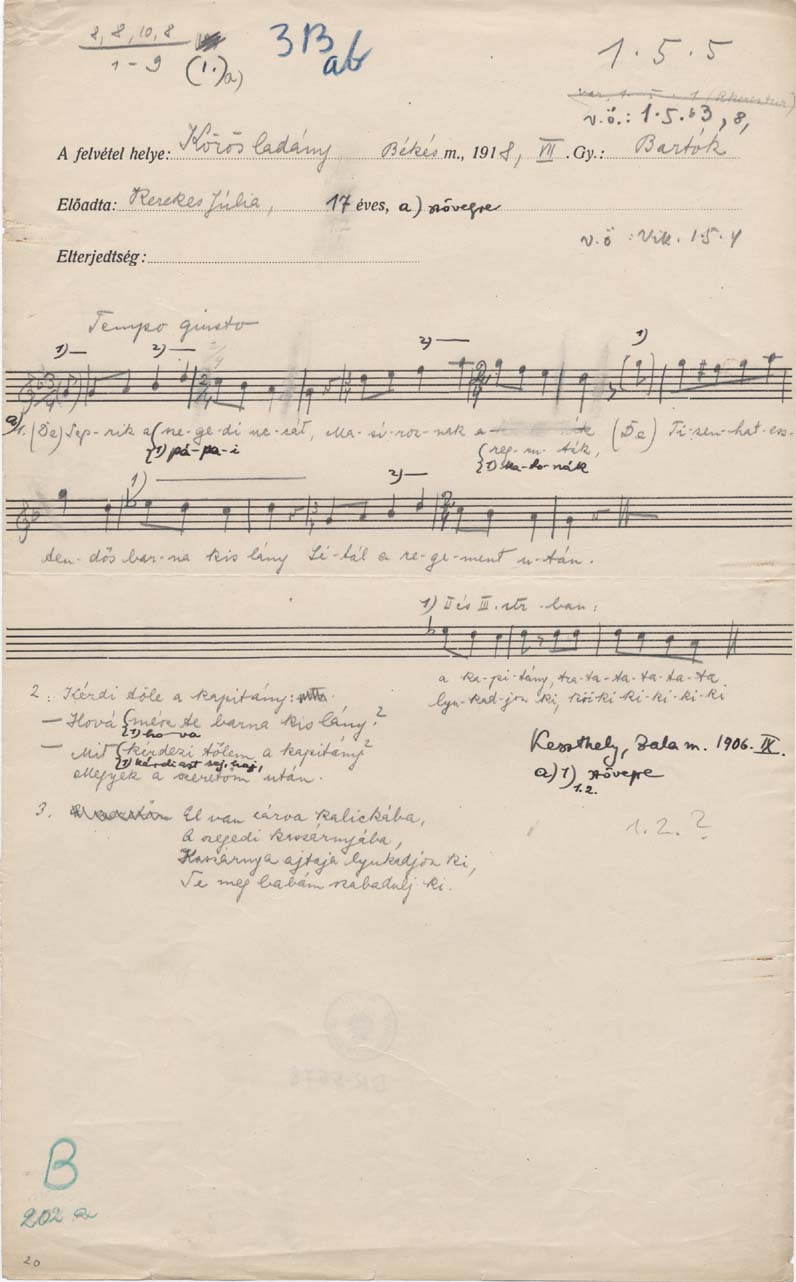 8, 8, 10, 8
1-9 (1.)a)
3B
ab
1.5.5
v.ö.: 1.5.b3, 8,
A felvétel helye: Körösladány Békés m., 1918, VII. Gy.: Bartók
Előadta: Kerekes Júlia, 17 éves, a) szövegre
v.ö: Vik. 1.5.4
Elterjedtség:
Tempo giusto
1) 2) 2) 1)
a) 1. (De) Sep-rik a ne-ge-di uc-cát, Ma-sí-roz-nak a (De) Ti-zen-hat-esz-
1) pá-pa-i reg-ru-ták,
1) ka-to-nák
1) 2)
ten-dős bar-na kis lány Sé-tál a re-ge-ment u-tán.
1) II és III. str.-ban:
a ka-pi-tány, tra-ta-ta-ta-ta-ta
lyu-kad-jon ki, ki ki ki-ki-ki
2. Kérdi tőle a kapitány:
— Hová mész te barna kis lány?
1) ho-va
— Mit kérdezi tőlem a kapitány?
1) kérdi azt sej, haj,
Megyek a szeretőm után.
Keszthely, Zala m. 1906. IX.
a) 1) szövegre
1.2.
1.2.?
3. El van zárva kalickába,
A szegedi kaszárnyába,
Kaszárnya ajtaja lyukadjon ki,
Te meg babám szabadulj ki.
B
202 a
20